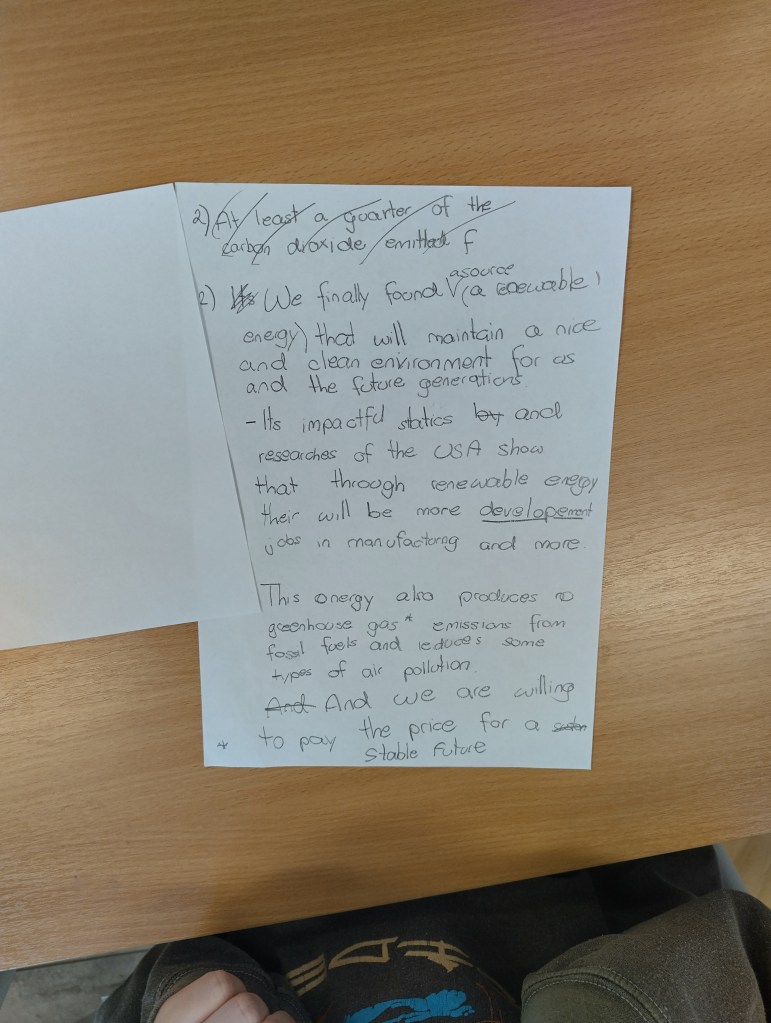 2) (At least a quarter of the
carbon dioxide emitted f
a source
2) We finally found V (a renewable
energy) that will maintain a nice
and clean environment for us
and the future generations
- Its impactful statics by and
researches of the USA show
that through renewable energy
their will be more developement
jobs in manufactorng and more.
This energy also produces no
greenhouse gas* emissions from
fossil fuels and reduces some
types of air pollution.
And And we are willing
* to pay the price for a
stable future